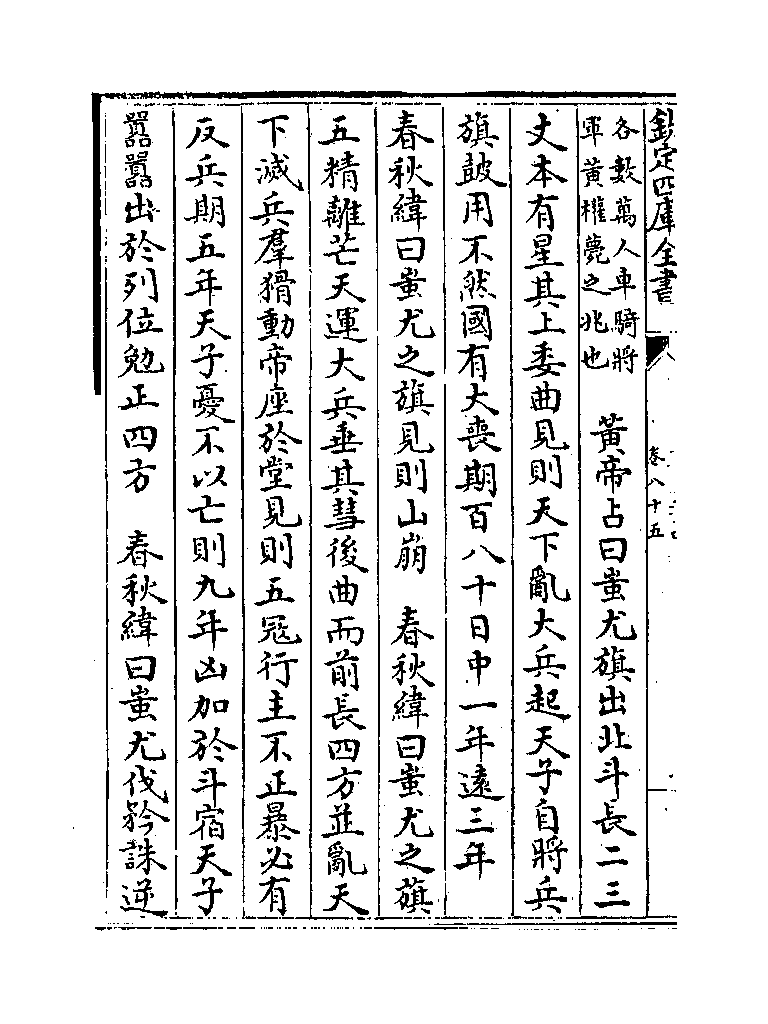 欽定四庫全書
卷八十五
各數萬人車騎將
軍黃權薨之兆也
黃帝占曰蚩尤旗出北斗長二三
丈本有星其上委曲見則天下亂大兵起天子自將兵
旗鼓用不然國有大喪期百八十日中一年遠三年
春秋緯曰蚩尤之旗見則山崩　春秋緯曰蚩尤之旗
五精離芒天運大兵垂其彗後曲而前長四方並亂天
下滅兵羣猾動帝座於堂見則五冦行主不正暴必有
反兵期五年天子憂不以亡則九年凶加於斗宿天子
嚚嚚出於列位勉正四方　春秋緯曰蚩尤伐矜誅逆